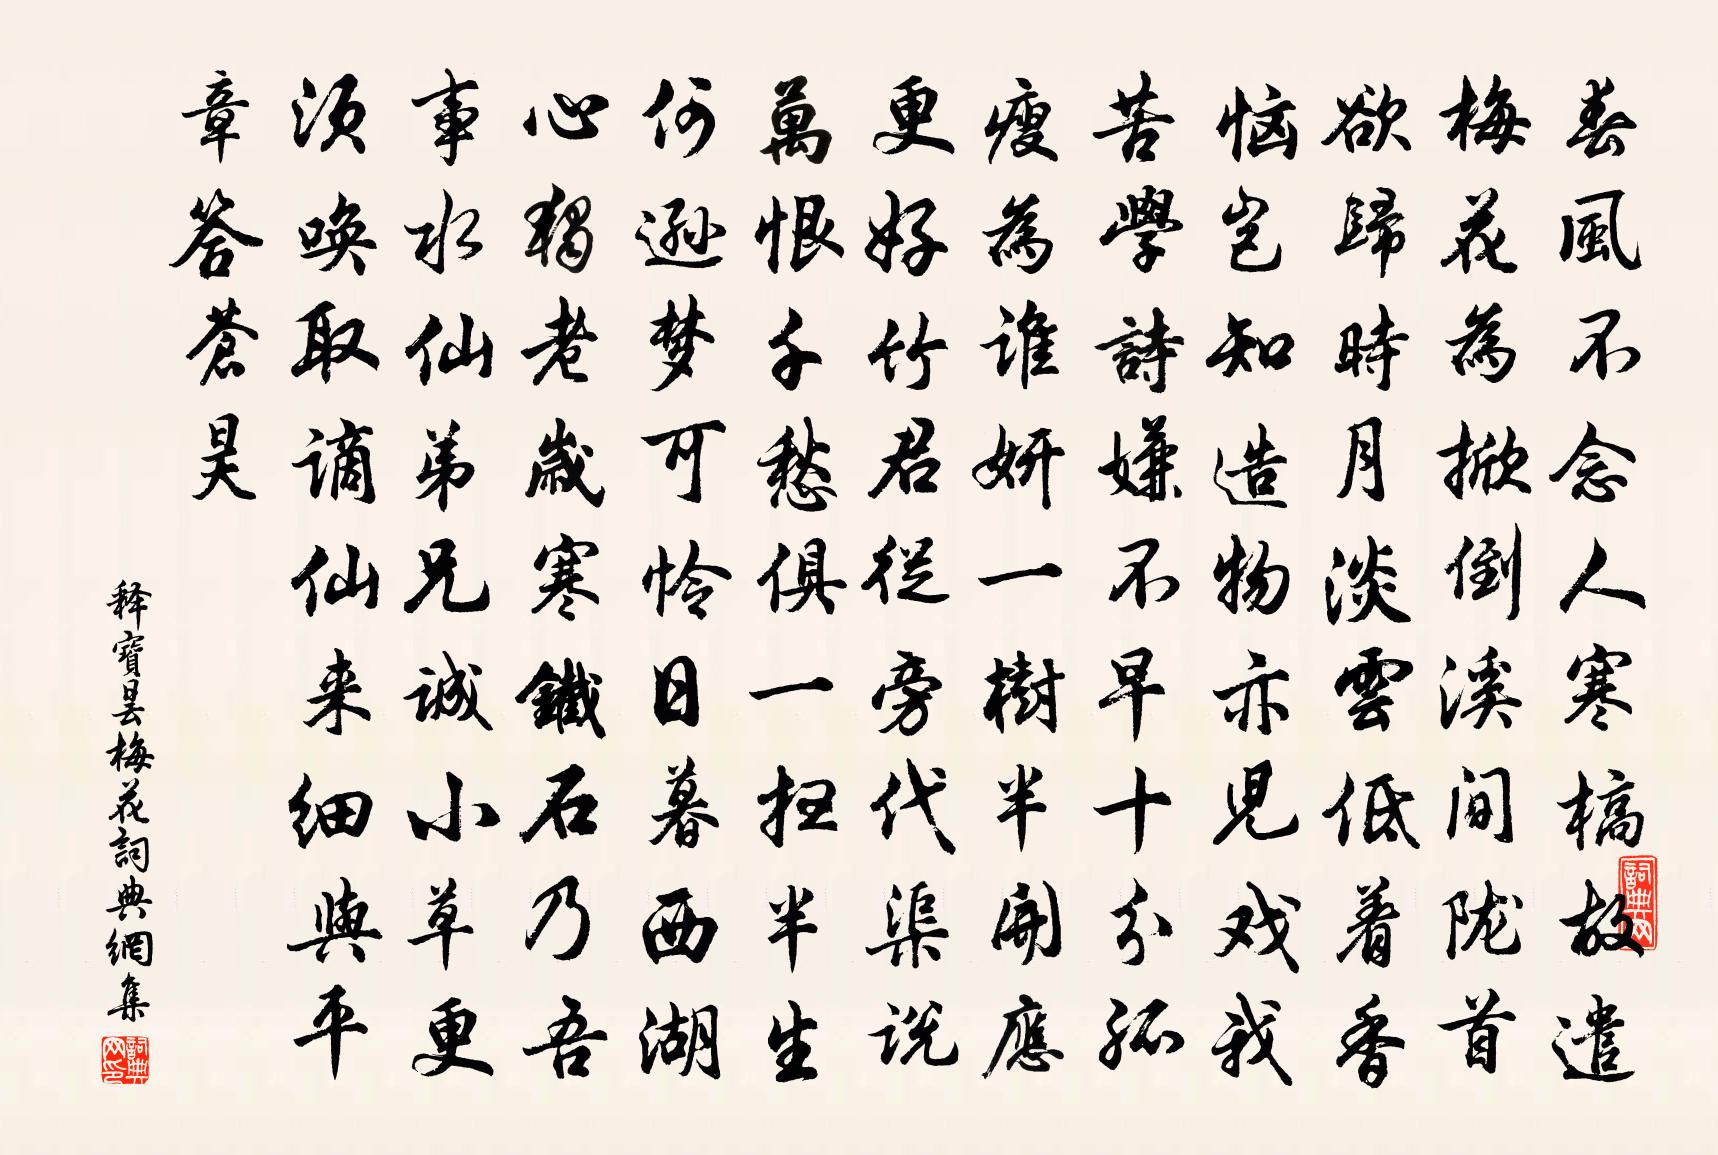 春風不念人寒槁故遣
梅花為掀倒溪間陇首
欲歸時月淡雲低着香
恼岂知造物亦児戏我
苦學詩嫌不早十分孤
瘦為谁妍一樹半開應
更好竹君從旁代渠说
萬恨千愁俱一扫半生
何逊梦可怜日暮西湖
心独老歲寒鐵石乃吾
事水仙弟兄诚小草更
须唤取谪仙来细與平
章答蒼昊
释寶昙梅花詞典網集
詞典网
詞典网印